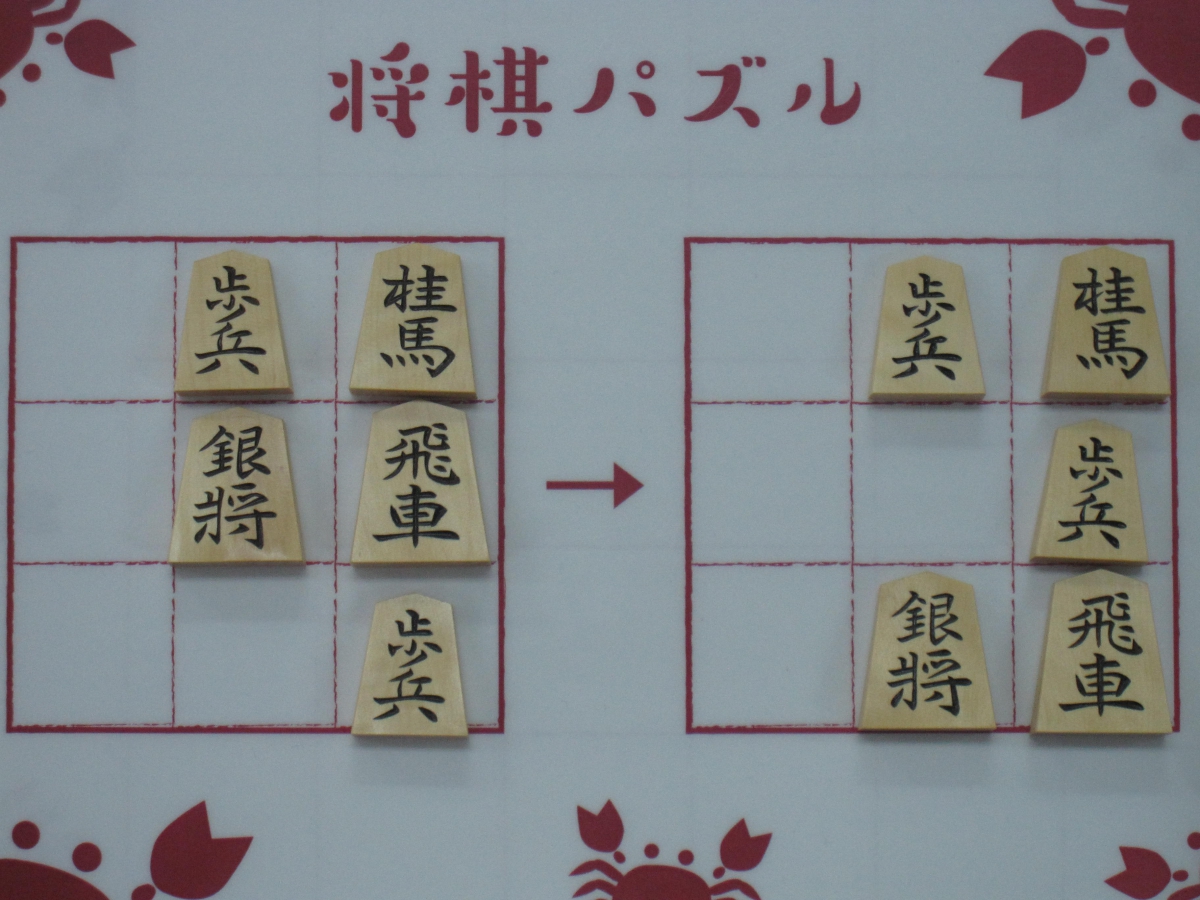 将棋パズル
歩兵
桂馬
銀将
飛車
歩兵
歩兵
桂馬
歩兵
銀将
飛車